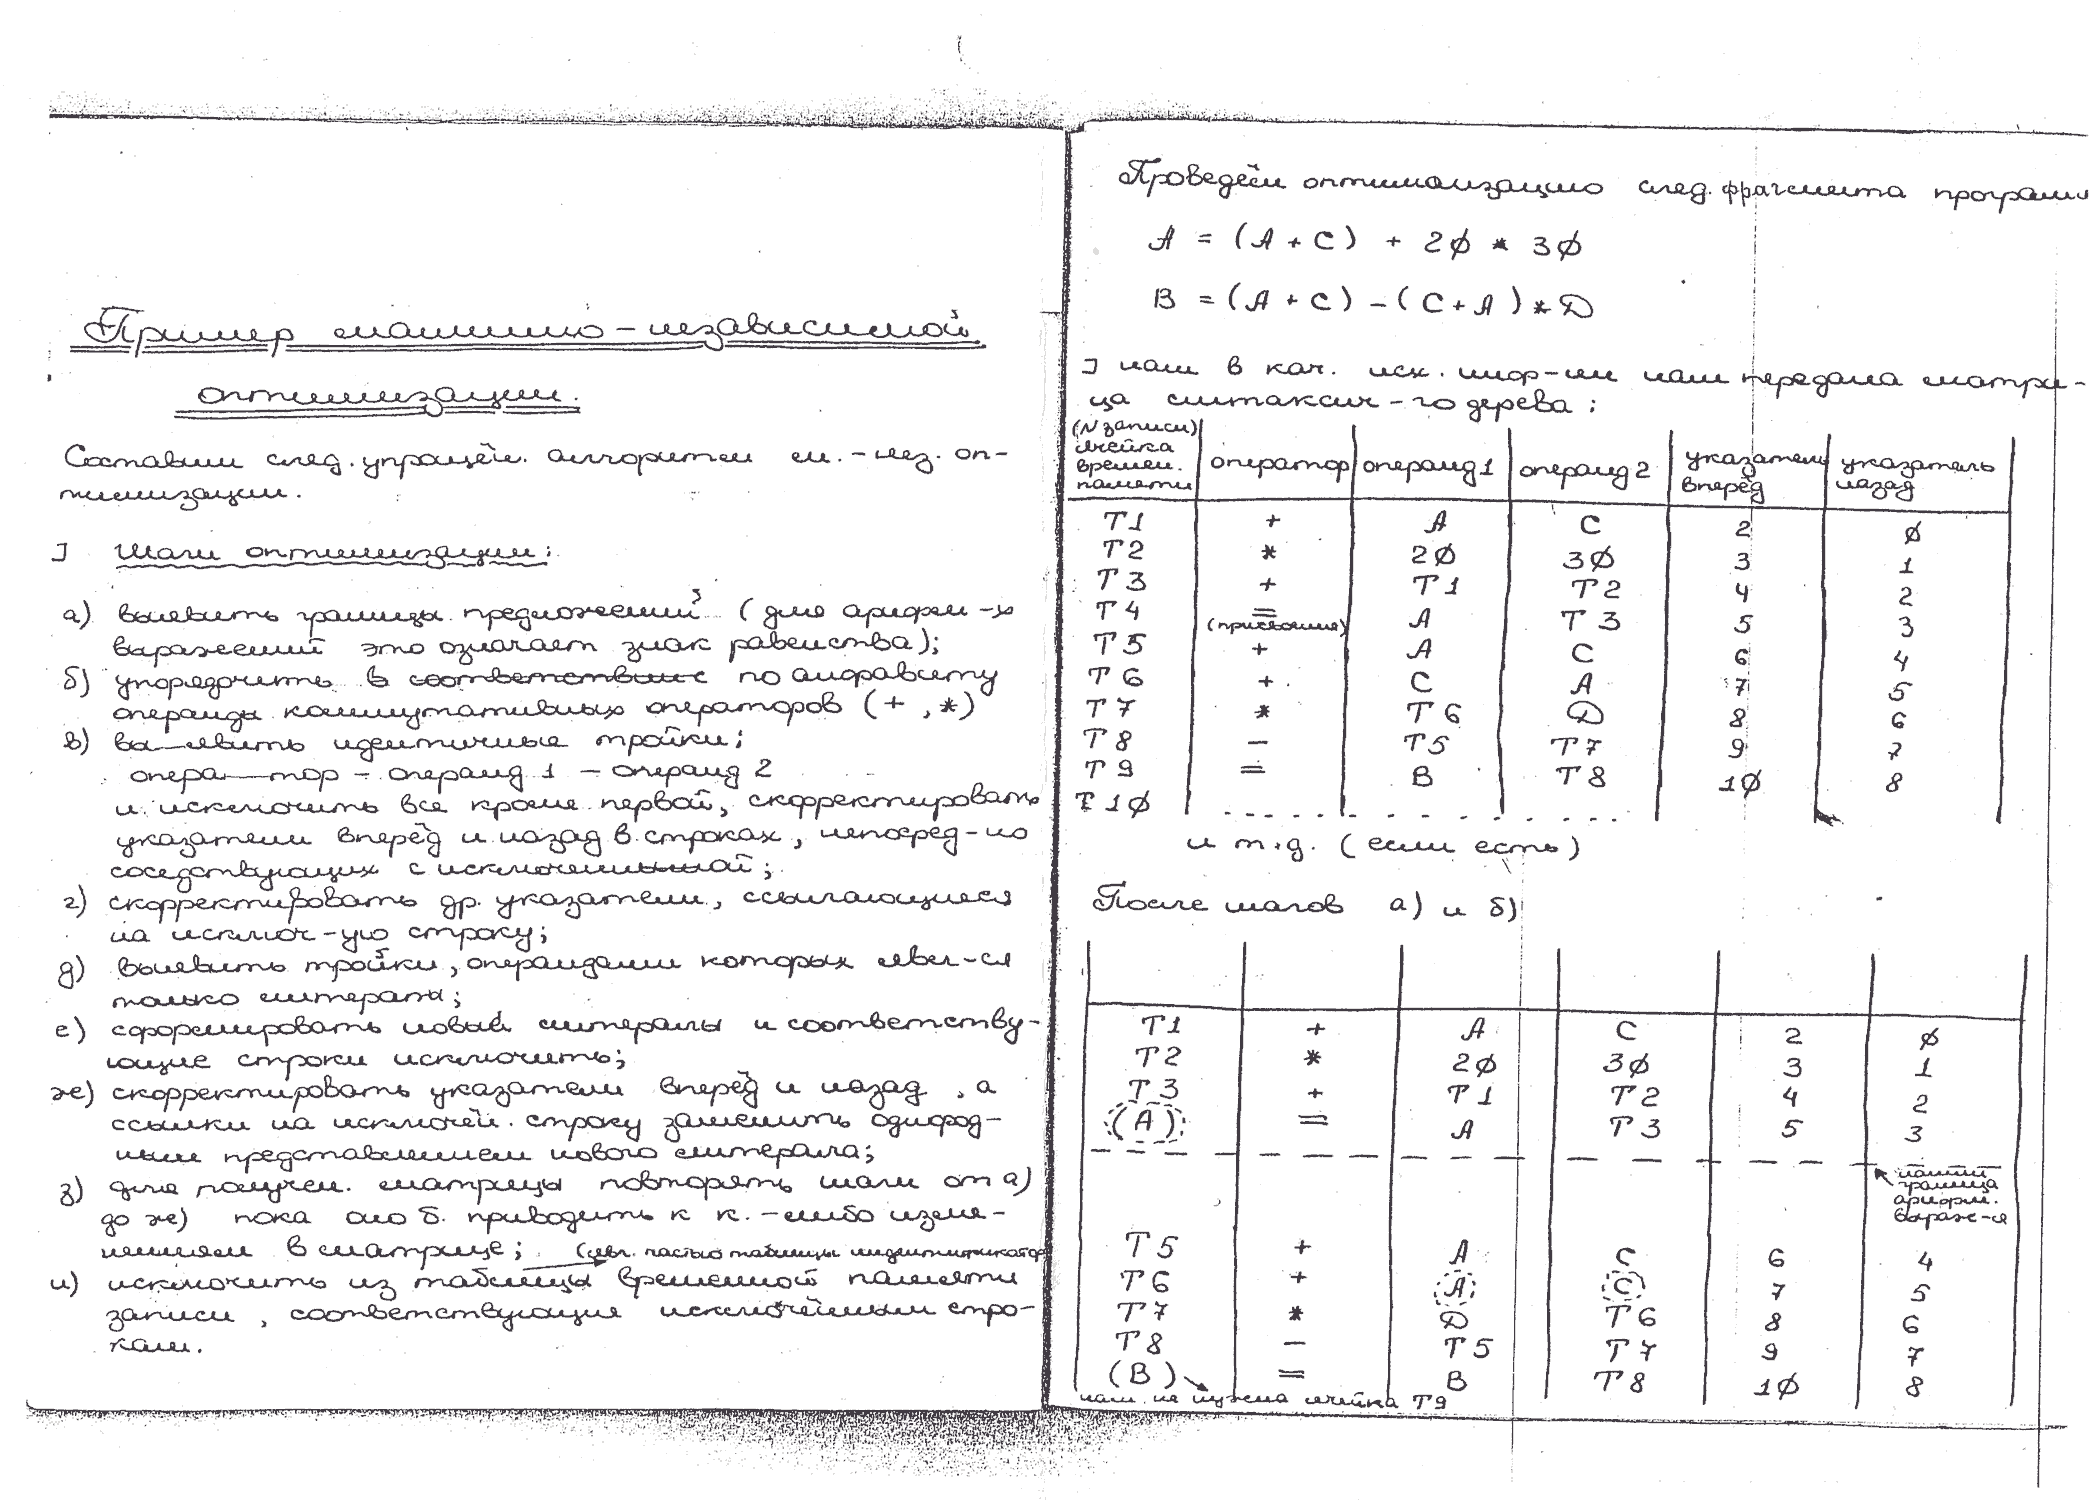 Пример машинно-независимой
оптимизации.
Составим след. упрощён. алгоритм м.-нез. оп-
тимизации.
I Шаги оптимизации:
а) выявить границы предложений (для арифм-х
выражений это означает знак равенства);
б) упорядочить в соответствие по алфавиту
операнды коммутативных операторов (+, *)
в) вы—явить идентичные тройки;
опера—тор - операнд 1 - операнд 2
и исключить все кроме первой, скорректировать
указатели вперёд и назад в строках, непосред-но
соседствующих с исключенной;
г) скорректировать др. указатели, ссылающиеся
на исключ-ую строку;
д) выявить тройки, операндами которых явл-ся
только литералы;
е) сформировать новый литералы и соответству-
ющие строки исключить;
ж) скорректировать указатели вперёд и назад, а
ссылки на исключён. строку заменить однород-
ным представлением нового литерала;
з) для получен. матрицы повторять шаги от а)
до ж) пока оно б. приводить к к.-либо изме-
нениям в матрице; (явл. частью таблицы индентификатор
и) исключить из таблицы временной памяти
записи, соответствующие исключённым стро-
кам.
Проведём оптимизацию след. фрагмента програм
A = (A + C) + 2∅ * 3∅
B = (A + C) - (C + A) * D
] нам в кач. исх. инф-ии нам передана матри-
ца синтаксич-го дерева:
(N записи) ячейка времен. памяти оператор операнд 1 операнд 2 указатель вперёд указатель назад
T1 + A C 2 ∅
T2 * 2∅ 3∅ 3 1
T3 + T1 T2 4 2
T4 = (присвоение) A T3 5 3
T5 + A C 6 4
T6 + C A 7 5
T7 * T6 D 8 6
T8 - T5 T7 9 7
T9 = B T8 1∅ 8
T1∅ . . . . . . . . . . . . . . .
и т.д. (если есть)
После шагов а) и б)
T1 + A C 2 ∅
T2 * 2∅ 3∅ 3 1
T3 + T1 T2 4 2
(A) = A T3 5 3
граница
арифм.
выраж-я
T5 + A C 6 4
T6 + A C 7 5
T7 * D T6 8 6
T8 - T5 T7 9 7
(B) = B T8 1∅ 8
нам не нужна ячейка T9